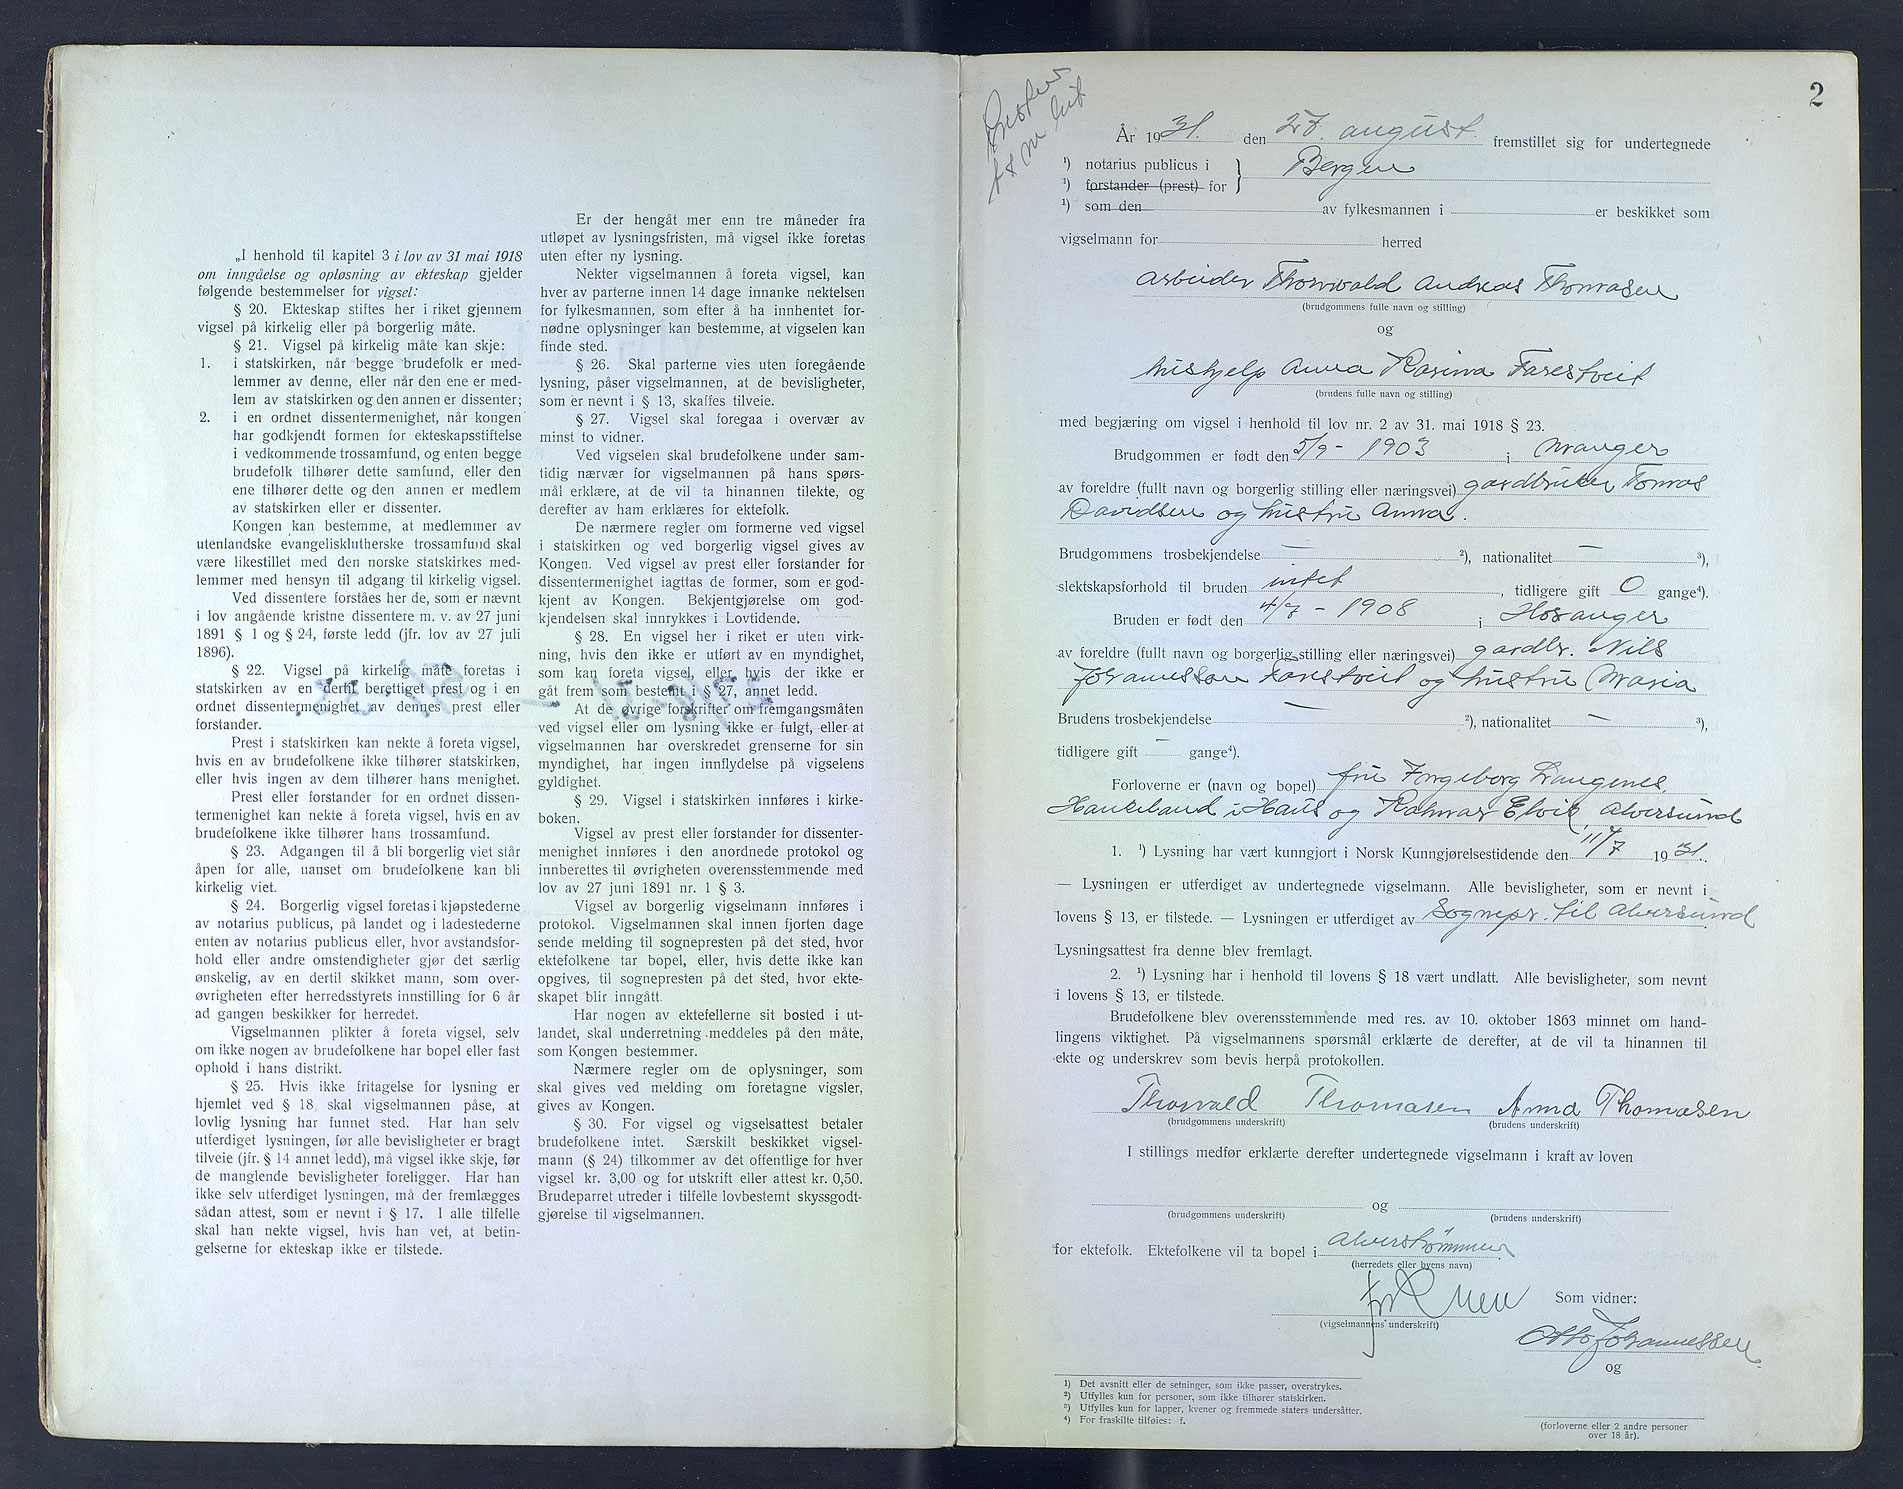 „I henhold til kapitel 3 i lov av 31 mai 1918
om inngåelse og opløsning av ekteskap gjelder
følgende bestemmelser for vigsel:
§ 20. Ekteskap stiftes her i riket gjennem
vigsel på kirkelig eller på borgerlig måte.
§ 21. Vigsel på kirkelig måte kan skje:
1. i statskirken, når begge brudefolk er med-
lemmer av denne, eller når den ene er med-
lem av statskirken og den annen er dissenter;
2. i en ordnet dissentermenighet, når kongen
har godkjendt formen for ekteskapsstiftelse
i vedkommende trossamfund, og enten begge
brudefolk tilhører dette samfund, eller den
ene tilhører dette og den annen er medlem
av statskirken eller er dissenter.
Kongen kan bestemme, at medlemmer av
utenlandske evangelisklutherske trossamfund skal
være likestillet med den norske statskirkes med-
lemmer med hensyn til adgang til kirkelig vigsel.
Ved dissentere forståes her de, som er nævnt
i lov angående kristne dissentere m. v. av 27 juni
1891 § 1 og § 24, første ledd (jfr. lov av 27 juli
1896).
§ 22. Vigsel på kirkelig måte foretas i
statskirken av en dertil berettiget prest og i en
ordnet dissentermenighet av dennes prest eller
forstander.
Prest i statskirken kan nekte å foreta vigsel,
hvis en av brudefolkene ikke tilhører statskirken,
eller hvis ingen av dem tilhører hans menighet.
Prest eller forstander for en ordnet dissen-
termenighet kan nekte å foreta vigsel, hvis en av
brudefolkene ikke tilhører hans trossamfund.
§ 23. Adgangen til å bli borgerlig viet står
åpen for alle, uanset om brudefolkene kan bli
kirkelig viet.
§ 24. Borgerlig vigsel foretas i kjøpstederne
av notarius publicus, på landet og i ladestederne
enten av notarius publicus eller, hvor avstandsfor-
hold eller andre omstendigheter gjør det særlig
ønskelig, av en dertil skikket mann, som over-
øvrigheten efter herredsstyrets innstilling for 6 år
ad gangen beskikker for herredet.
Vigselmannen plikter å foreta vigsel, selv
om ikke nogen av brudefolkene har bopel eller fast
ophold i hans distrikt.
§ 25. Hvis ikke fritagelse for lysning er
hjemlet ved § 18, skal vigselmannen påse, at
lovlig lysning har funnet sted. Har han selv
utferdiget lysningen, før alle bevisligheter er bragt
tilveie (jfr. § 14 annet ledd), må vigsel ikke skje, før
de manglende bevisligheter foreligger. Har han
ikke selv utferdiget lysningen, må der fremlægges
sådan attest, som er nevnt i § 17. I alle tilfelle
skal han nekte vigsel, hvis han vet, at betin-
gelserne for ekteskap ikke er tilstede.
Er der hengåt mer enn tre måneder fra
utløpet av lysningsfristen, må vigsel ikke foretas
uten efter ny lysning.
Nekter vigselmannen å foreta vigsel, kan
hver av parterne innen 14 dage innanke nektelsen
for fylkesmannen, som efter å ha innhentet for-
nødne oplysninger kan bestemme, at vigselen kan
finde sted.
§ 26. Skal parterne vies uten foregående
lysning, påser vigselmannen, at de bevisligheter,
som er nevnt i § 13, skaffes tilveie.
§ 27. Vigsel skal foregaa i overvær av
minst to vidner.
Ved vigselen skal brudefolkene under sam-
tidig nærvær for vigselmannen på hans spørs-
mål erklære, at de vil ta hinannen tilekte, og
derefter av ham erklæres for ektefolk.
De nærmere regler om formerne ved vigsel
i statskirken og ved borgerlig vigsel gives av
Kongen. Ved vigsel av prest eller forstander for
dissentermenighet iagttas de former, som er god-
kjent av Kongen. Bekjentgjørelse om god-
kjendelsen skal innrykkes i Lovtidende.
§ 28. En vigsel her i riket er uten virk-
ning, hvis den ikke er utført av en myndighet,
som kan foreta vigsel, eller hvis der ikke er
gåt frem som bestemt i § 27, annet ledd.
At de øvrige forskrifter om fremgangsmåten
ved vigsel eller om lysning ikke er fulgt, eller at
vigselmannen har overskredet grenserne for sin
myndighet, har ingen innflydelse på vigselens
gyldighet.
§ 29. Vigsel i statskirken innføres i kirke-
boken.
Vigsel av prest eller forstander for dissenter-
menighet innføres i den anordnede protokol og
innberettes til øvrigheten overensstemmende med
lov av 27 juni 1891 nr. 1 § 3.
Vigsel av borgerlig vigselmann innføres i
protokol. Vigselmannen skal innen fjorten dage
sende melding til sognepresten på det sted, hvor
ektefolkene tar bopel, eller, hvis dette ikke kan
opgives, til sognepresten på det sted, hvor ekte-
skapet blir inngått.
Har nogen av ektefellerne sit bosted i ut-
landet, skal underretning meddeles på den måte,
som Kongen bestemmer.
Nærmere regler om de oplysninger, som
skal gives ved melding om foretagne vigsler,
gives av Kongen.
§ 30. For vigsel og vigselsattest betaler
brudefolkene intet. Særskilt beskikket vigsel-
mann (§ 24) tilkommer av det offentlige for hver
vigsel kr. 3,00 og for utskrift eller attest kr. 0,50.
Brudeparret utreder i tilfelle lovbestemt skyssgodt-
gjørelse til vigselmannen.
2
År 1931. den 27. august. fremstillet sig for undertegnede
¹) notarius publicus i } Bergen
¹) forstander (prest) for
¹) som den av fylkesmannen i er beskikket som
vigselmann for herred
arbeider Thorvald Andreas Thomasen
(brudgommens fulle navn og stilling)
og
hushjelp Anna Karina Farestveit
(brudens fulle navn og stilling)
med begjæring om vigsel i henhold til lov nr. 2 av 31. mai 1918 § 23.
Brudgommen er født den 5/9 - 1903 i Manger
av foreldre (fullt navn og borgerlig stilling eller næringsvei) gardbruker Tomas
Davidsen og hustru Anna.
Brudgommens trosbekjendelse — ²), nationalitet — ³),
slektskapsforhold til bruden intet, tidligere gift 0 gange⁴).
Bruden er født den 4/7 - 1908 i Hosanger
av foreldre (fullt navn og borgerlig stilling eller næringsvei) gardbr. Nils
Johannesson Farestveit og hustru Maria
Brudens trosbekjendelse — ²), nationalitet — ³),
tidligere gift — gange⁴).
Forloverne er (navn og bopel) fru Ingeborg Langenes,
Haukeland i Haus og Kalmar Elvik, Alversund
1. ¹) Lysning har vært kunngjort i Norsk Kunngjørelsestidende den 11/7 1931.
— Lysningen er utferdiget av undertegnede vigselmann. Alle bevisligheter, som er nevnt i
lovens § 13, er tilstede. — Lysningen er utferdiget av Sognepr. til Alversund
Lysningsattest fra denne blev fremlagt.
2. ¹) Lysning har i henhold til lovens § 18 vært undlatt. Alle bevisligheter, som nevnt
i lovens § 13, er tilstede.
Brudefolkene blev overensstemmende med res. av 10. oktober 1863 minnet om hand-
lingens viktighet. På vigselmannens spørsmål erklærte de derefter, at de vil ta hinannen til
ekte og underskrev som bevis herpå protokollen.
Thorvald Thomasen Anna Thomasen
(brudgommens underskrift) (brudens underskrift)
I stillings medfør erklærte derefter undertegnede vigselmann i kraft av loven
og
(brudgommens underskrift) (brudens underskrift)
for ektefolk. Ektefolkene vil ta bopel i Alverstrømmen
(herredets eller byens navn)
Som vidner:
(vigselmannens underskrift)
Otto Johannessen
og
¹) Det avsnitt eller de setninger, som ikke passer, overstrykes.
²) Utfylles kun for personer, som ikke tilhører statskirken.
³) Utfylles kun for lapper, kvener og fremmede staters undersåtter.
⁴) For fraskilte tilføies: f.
(forloverne eller 2 andre personer
over 18 år).